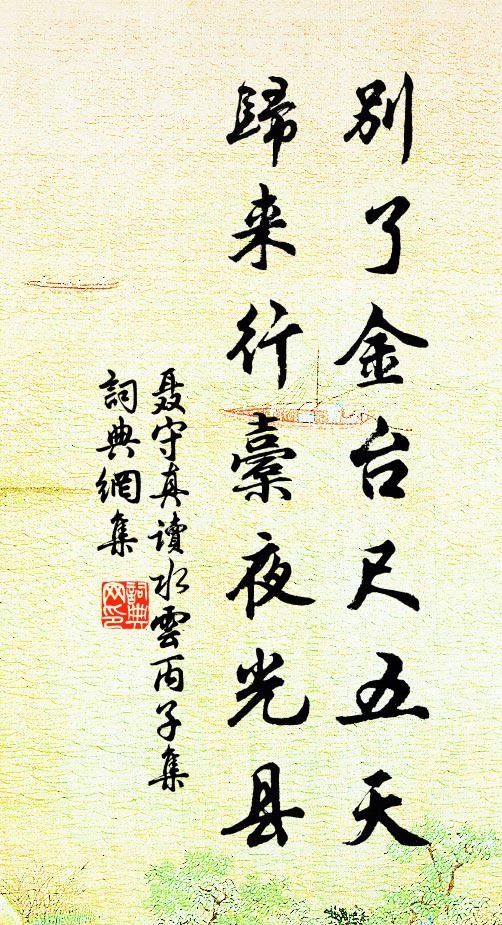 别了金台尺五天
歸来行橐夜光县
聂守真讀水雲丙子集
詞典網集
詞典网印